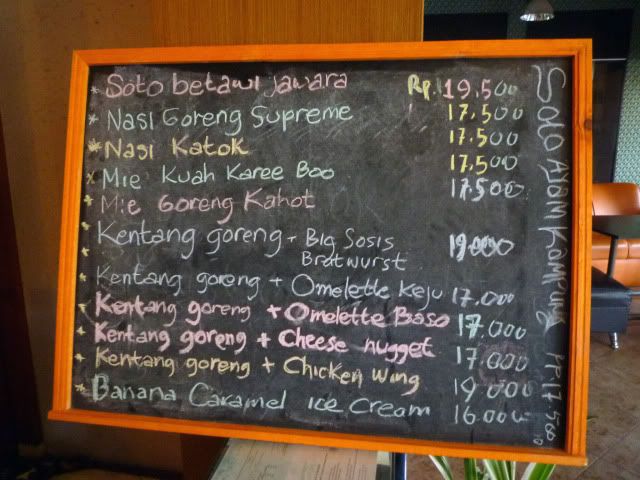 * Soto betawi jawara Rp. 19.500
* Nasi Goreng Supreme 17.500
* Nasi Katok 17.500
* Mie Kuah Karee Boo 17.500
* Mie Goreng Kahot 17.500
* Kentang goreng + Big Sosis 19.000
* Bratwurst
* Kentang goreng + Omelette Keju 17.000
* Kentang goreng + Omelette Baso 17.000
* Kentang goreng + Cheese nugget 17.000
* Kentang goreng + Chicken wing 19.000
* Banana Caramel ice cream 16.000
Soto Ayam Kampung Rp 17.500